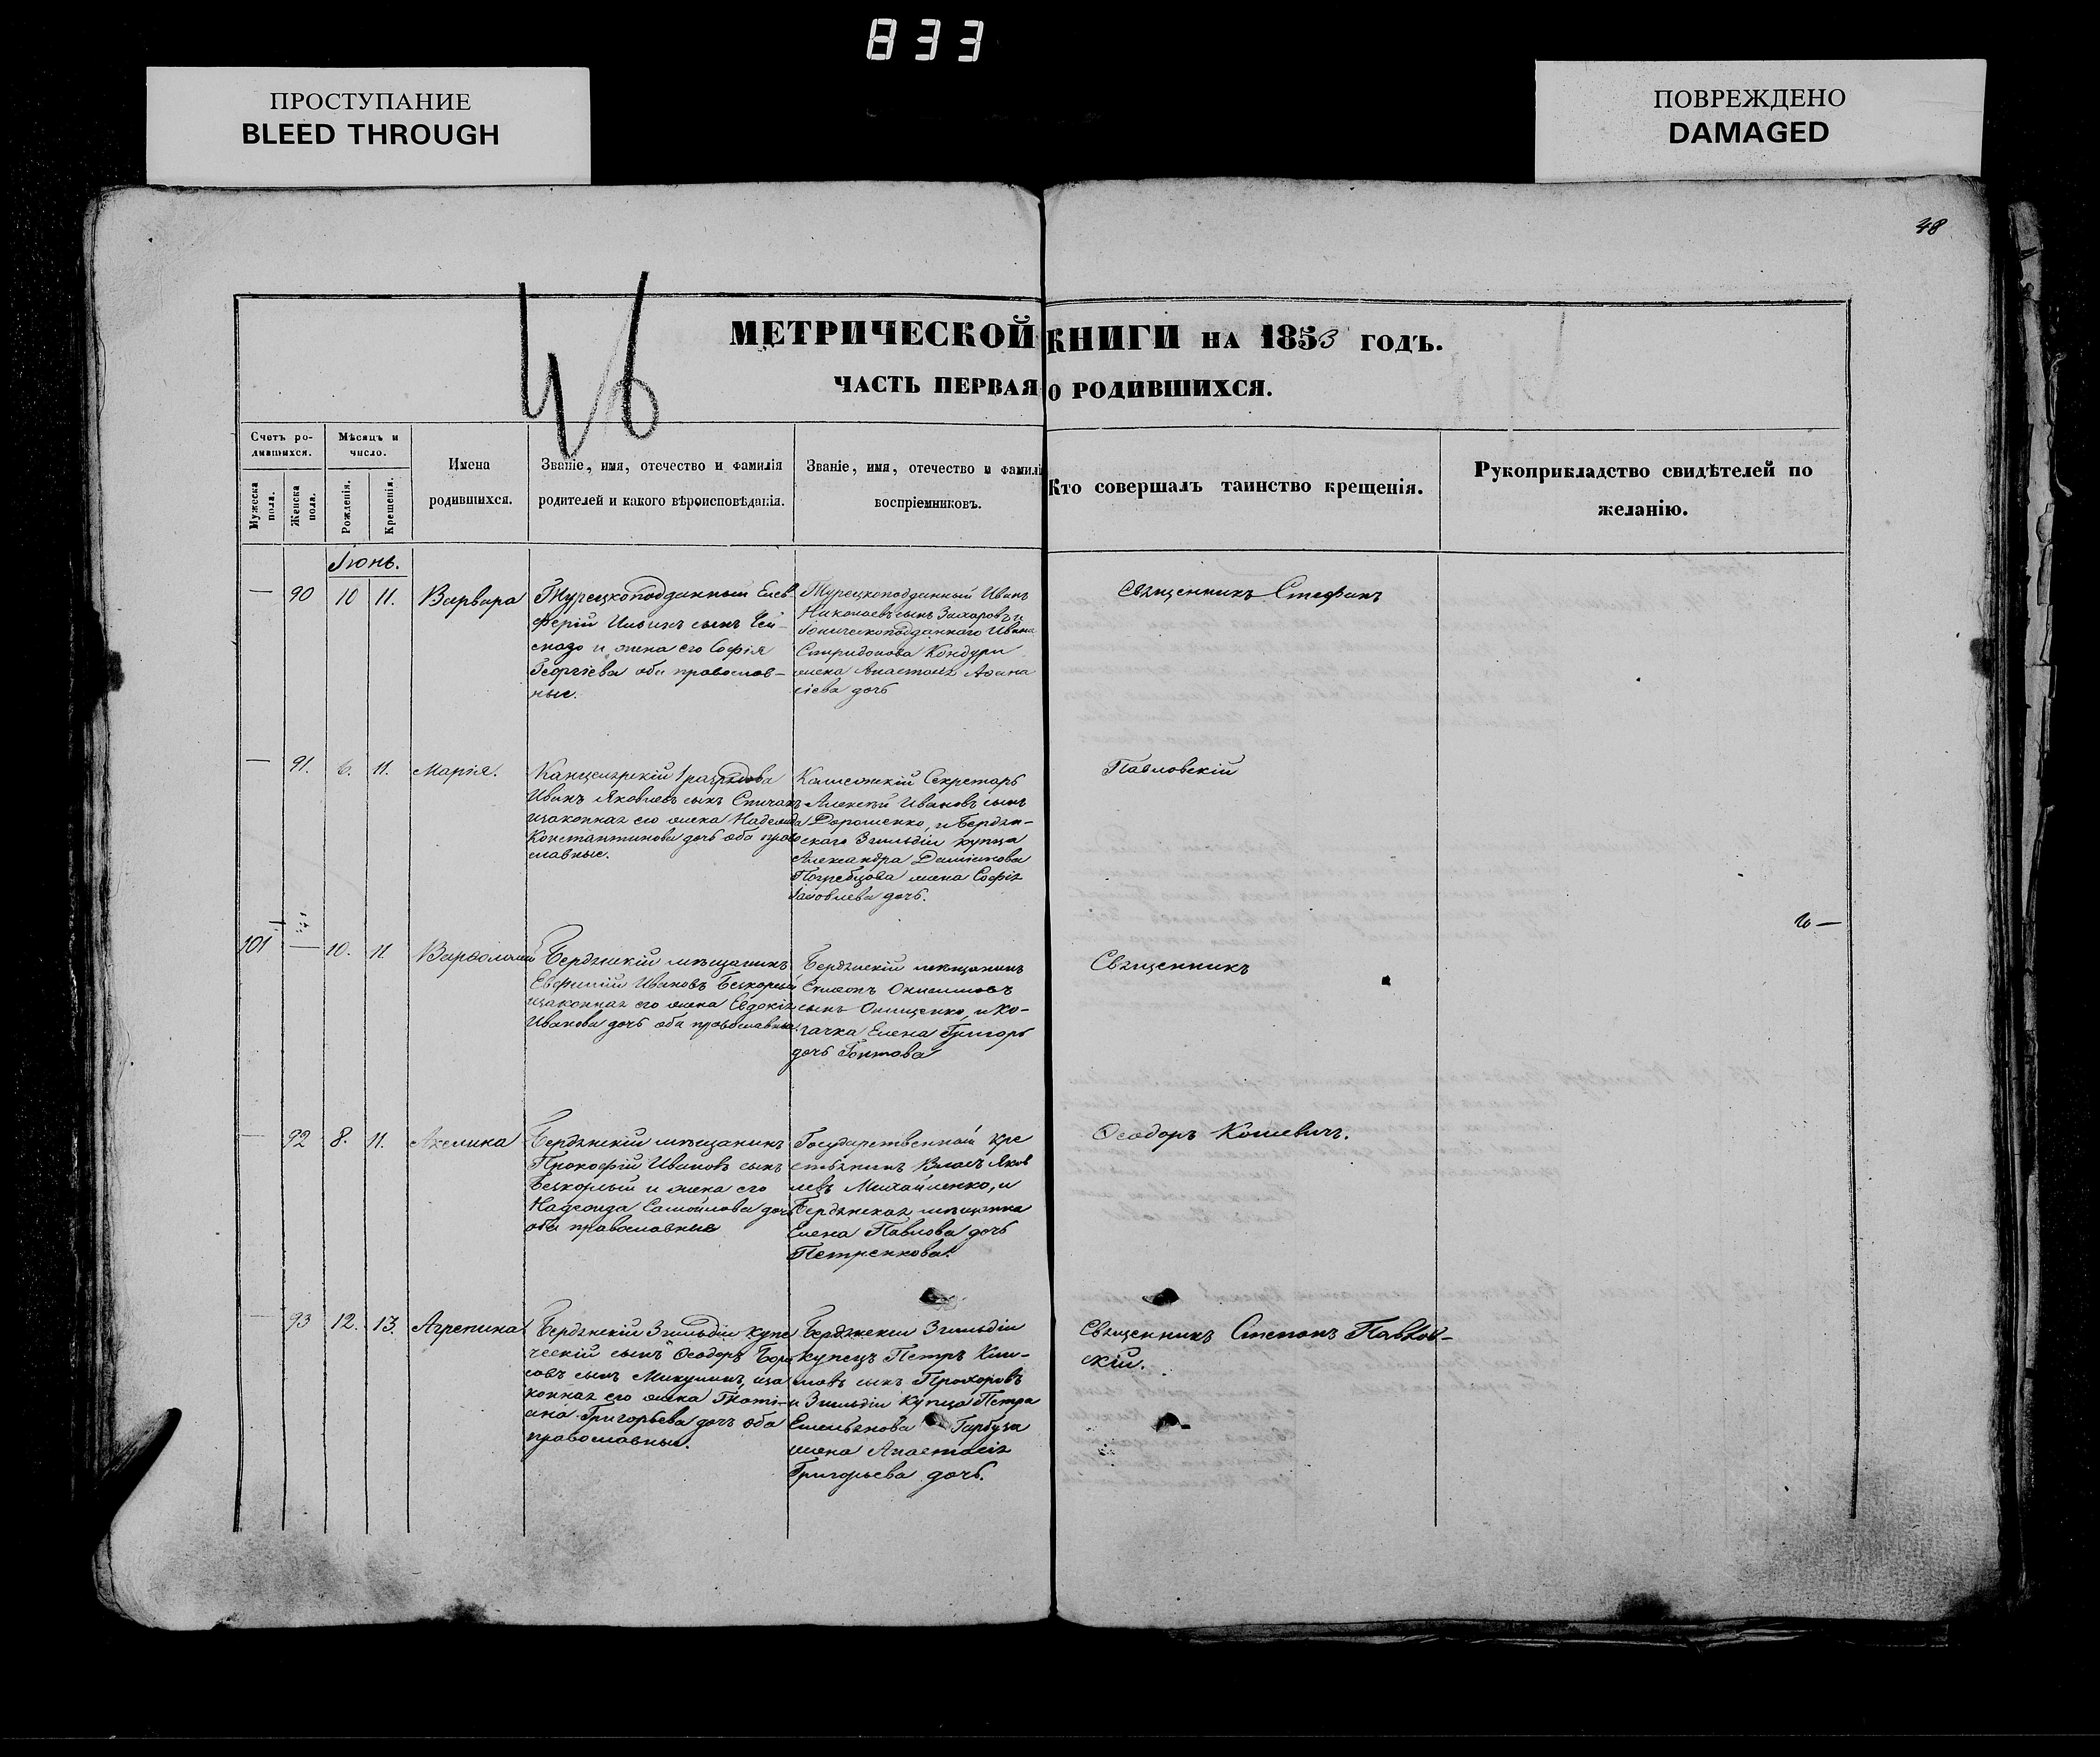 833
ПРОСТУПАНИЕ
BLEED THROUGH
ПОВРЕЖДЕНО
DAMAGED
48
46
МЕТРИЧЕСКОЙ КНИГИ НА 1853 ГОДЪ.
ЧАСТЬ ПЕРВАЯ О РОДИВШИХСЯ.
Счетъ ро-
дившихся.
Мужеска пола.
Женска пола.
Мѣсяцъ и
число.
Рожденія.
Крещенія.
Имена
родившихся.
Званіе, имя, отечество и фамилія
родителей и какого вѣроисповѣданія.
Званіе, имя, отечество и фамилі
воспріемниковъ.
Кто совершалъ таинство крещенія.
Рукоприкладство свидѣтелей по
желанію.
Іюнь.
— 90 10 11. Варвара
Турецкоподданный Елев-
ферій Ильинъ сынъ
и жена его Софія
Георгіева оба православ-
ные.
Турецкоподданный Иванъ
Николаевъ сынъ Захаровъ и
Іоническоподданнаго Ивана
Спиридонова Кондури
жена Анастасія Афана
сіева дочь
Священникъ Стефанъ
— 91. 6. 11. Марія.
Канцелярскій 1 разряда
Иванъ Яковлевъ сынъ Спичакъ
изаконная его жена Надежда
Константинова дочь оба право
славные.
Коллежскій Секретарь
Алексѣй Ивановъ сынъ
Дорошенко, и Бердян-
скаго 3 гильдіи купца
Александра Даміанова
Погребцова жена Софія
Іаковлева дочь.
Павловскій
101 — 10. 11 Варфоломей
Бердянскій мѣщанинъ
Евфимій Ивановъ Бескорый
изаконная его жена Евдокія
Иванова дочь оба православные
Бердянскій мѣщанинъ
Онисимовъ
сынъ Онищенко, и ко-
зачка Елена Григорь
дочь Гонтова
Священникъ
— 92 8. 11. Акелина
Бердянскій мѣщанинъ
Прокофій Ивановъ сынъ
и жена его
Надежда Самойлова дочь
оба православные
Государственный кре
стьянинъ Власъ Яков
левъ Михайленко, и
Бердянская мѣщанка
Елена Павлова дочь
Петренкова.
Ѳеодоръ Кошевичъ.
— 93 12. 13. Агрепина
Бердянскій 3 гильдіи купе
ческій сынъ Ѳеодоръ Бори
совъ сынъ Микулинъ, иза
конная его жена Тати-
ана Григорьева дочь оба
православные.
Бердянскій 3 гильдіи
купецъ Петръ Кли-
мовъ сынъ Прохоровъ
и 3 гильдіи купца Петра
Емельянова Гарбуза
жена Анастасія
Григорьева дочь.
Священникъ Стефанъ Павлов-
скій.